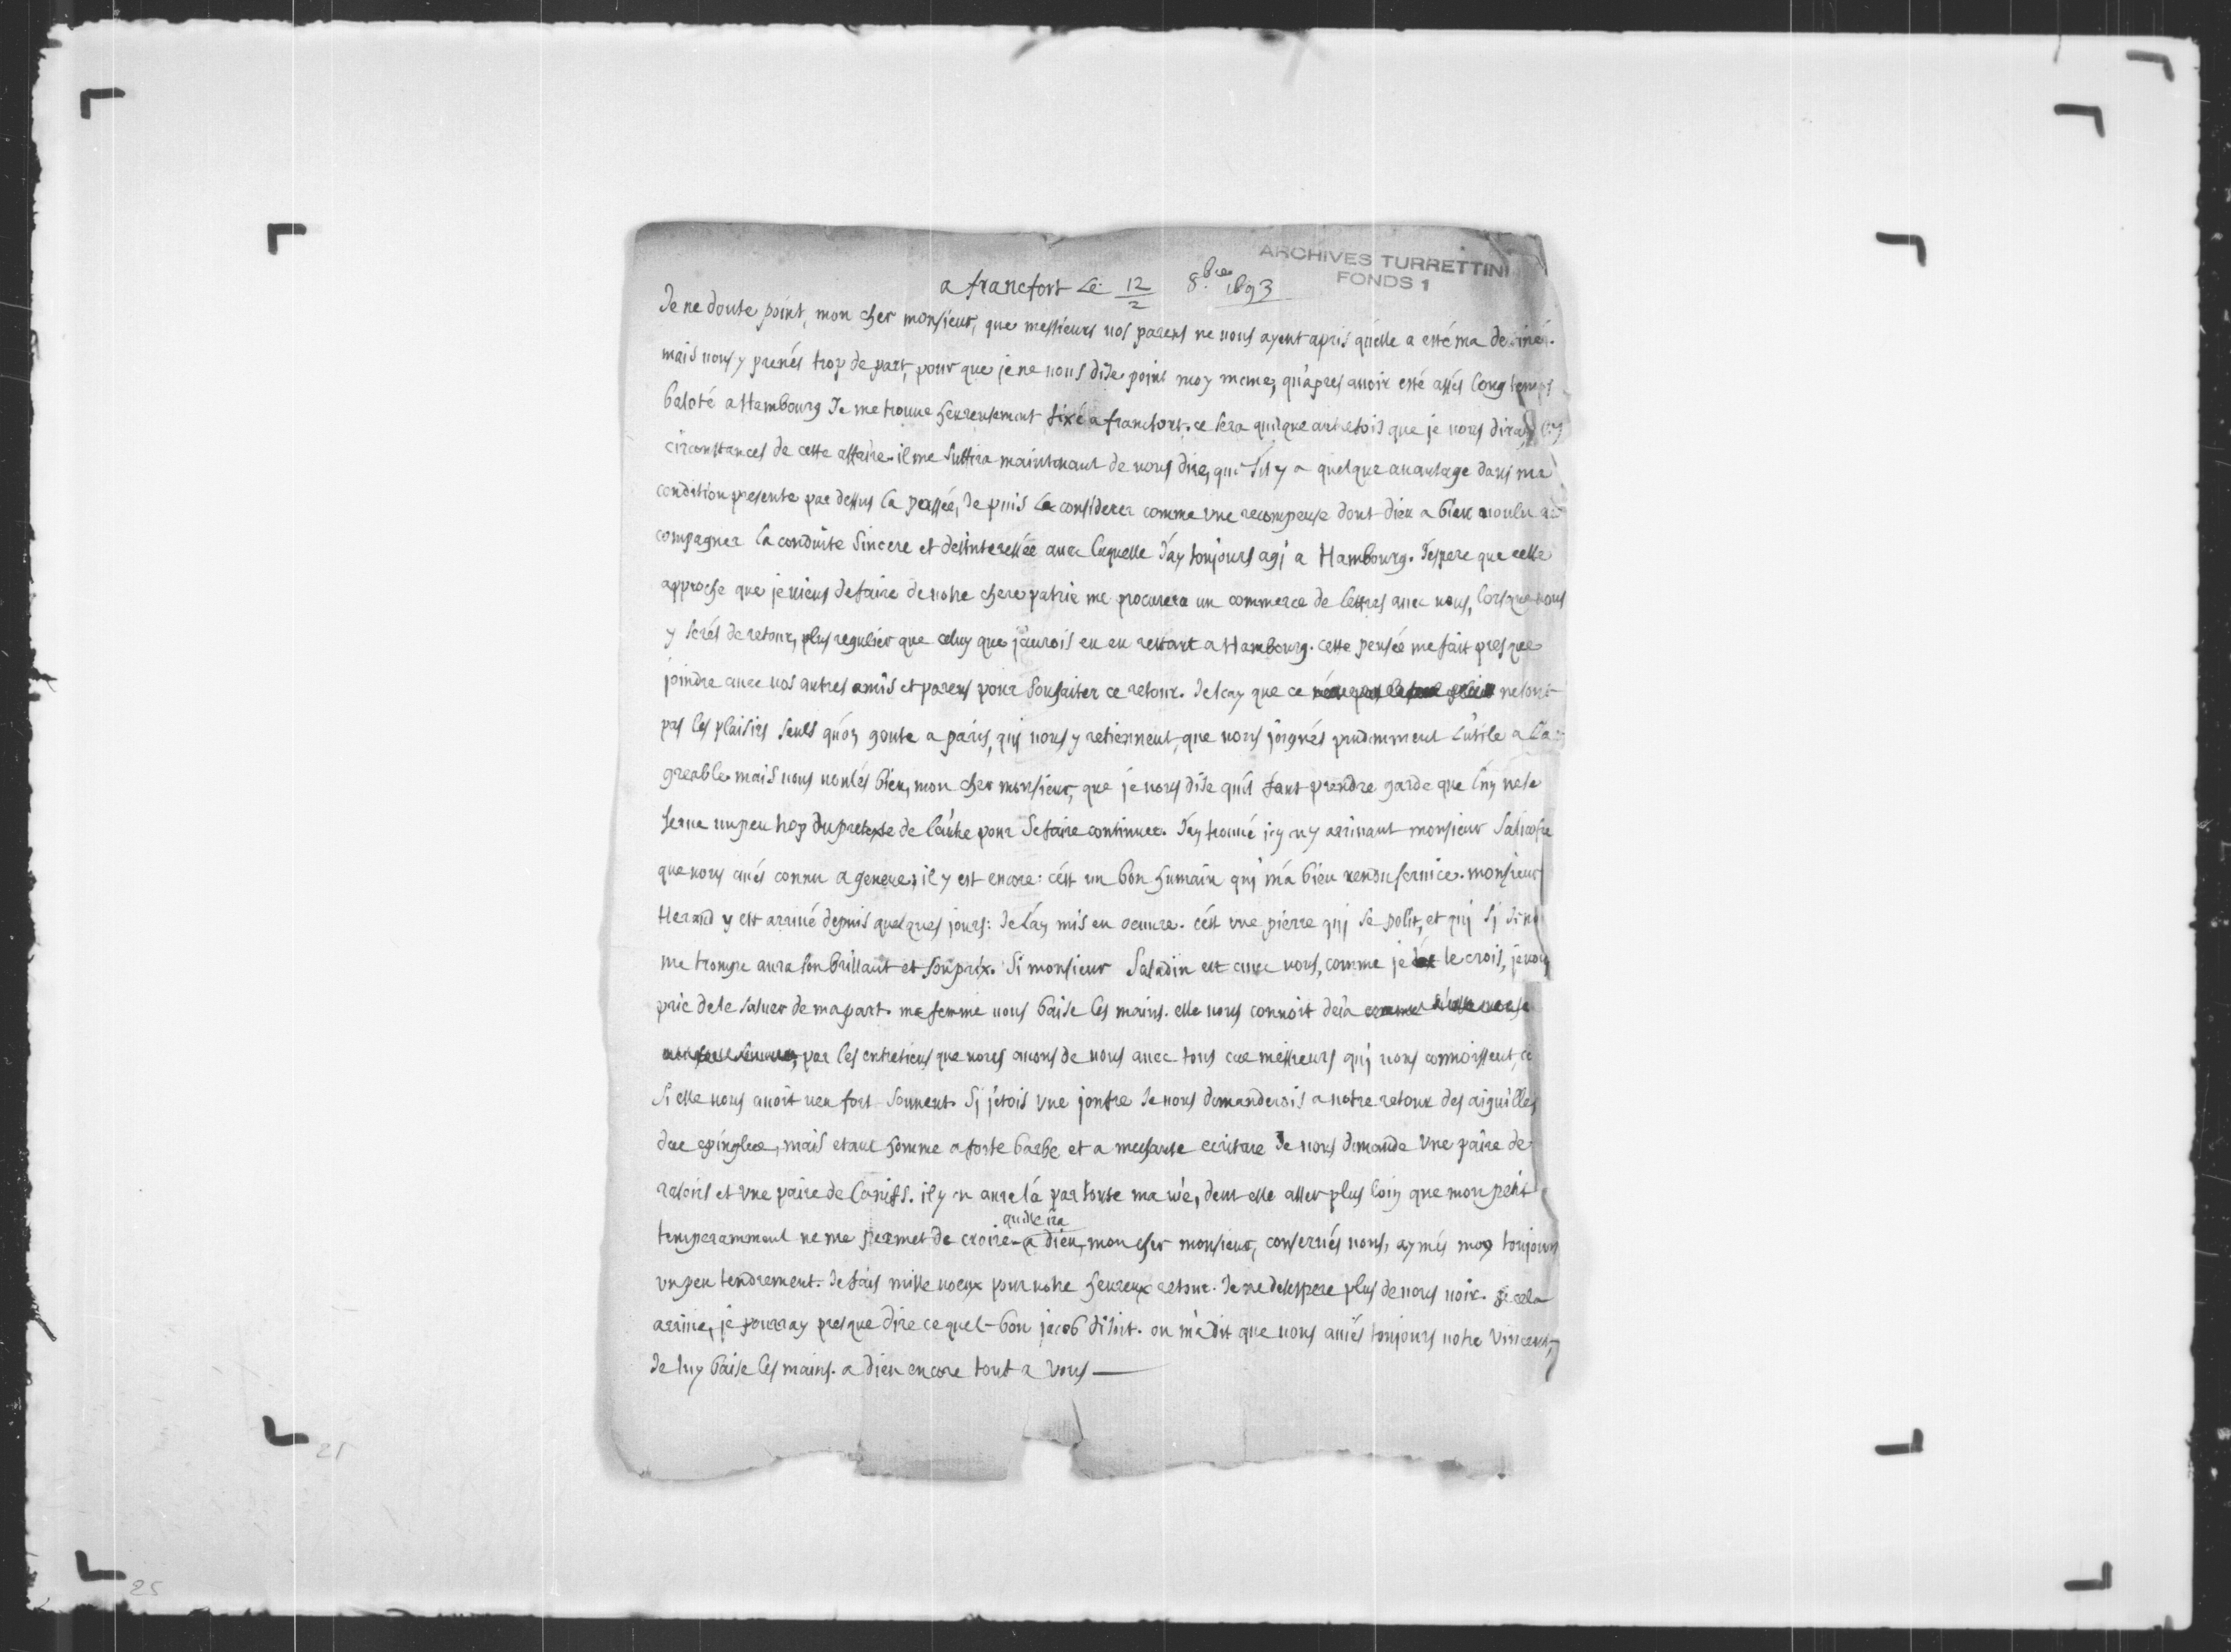 ARCHIVES TURRETTINI
FONDS 1
a francfort Le 12/2 8.bre 1693
Je ne doute point, mon cher monsieur, que messieurs vos parens ne vous ayent apris qu'elle a esté ma destinée.
mais vous y prenés trop de part, pour que je ne vous dise point moy meme, qu'apres avoir esté assés long temps
baloté a Hambourg Je me trouve heureusement fixé a francfort. ce sera quelque autrefois que je vous diray les
circonstances de cette affaire. il me suffira maintenant de vous dire, que s'il y a quelque avantage dans ma
condition presente par dessus la passée, Je puis la considerer comme une recompense dont dieu a bien voulu ac
compagner la conduite sincere et desinteressée avec laquelle J'ay toujours agi a Hambourg. J'espere que cette
approche que je viens de faire de notre chere patrie me procurera un commerce de lettres avec vous, lorsque vous
y serés de retour, plus regulier que celuy que j'aurois eu en restant a Hambourg. cette pensée me fait presque
joindre avec vos autres amis et parens pour souhaiter ce retour. Je scay que ce ne sont
pas les plaisirs seuls qu'on goute a paris, qui vous y retiennent, que vous joignés prudemment L'utile a L'a
greable. mais vous voulés bien, mon cher monsieur, que je vous dise qu'il faut prendre garde que l'un ne se
serve un peu trop du pretexte de l'autre pour se faire continuer. J'ay trouvé icy en y arrivant monsieur
que vous avés connu a geneve; il y est encore: c'est un bon humain qui m'a bien rendu service. monsieur
Heraud y est arrivé depuis quelques jours: Je l'ay mis en oeuvre. c'est une pierre qui se polit, et qui si je ne
me trompe aura son brillant et son prix. Si monsieur Saladin est avec vous, comme je le crois, je vous
prie de le saluer de ma part. ma femme vous baise les mains. elle vous connoit deia
par les entretiens que nous avons de vous avec tous ces messieurs qui vous connoissent,
si elle vous avoit veu fort souvent. Si j'etois une Je vous demanderois a votre retour des aiguilles
des epingles, mais etant homme a forte barbe et a mechante ecriture Je vous demande une paire de
rasoirs et une paire de canifs. il y en aura là par toute ma vie, deut elle aller plus loin que mon petit
temperamment ne me permet de croire qu'elle ira. a dieu, mon cher monsieur, conservés vous, aymés moy toujours
un peu tendrement. Je fais mille voeux pour votre heureux retour. Je ne desespere plus de vous voir. si cela
arrive, je pourray presque dire ce que l bon jacob disoit. on m'a dit que vous aviés toujours votre Vincent,
Je luy baise les mains. a dieu encore tout a vous —
21
25